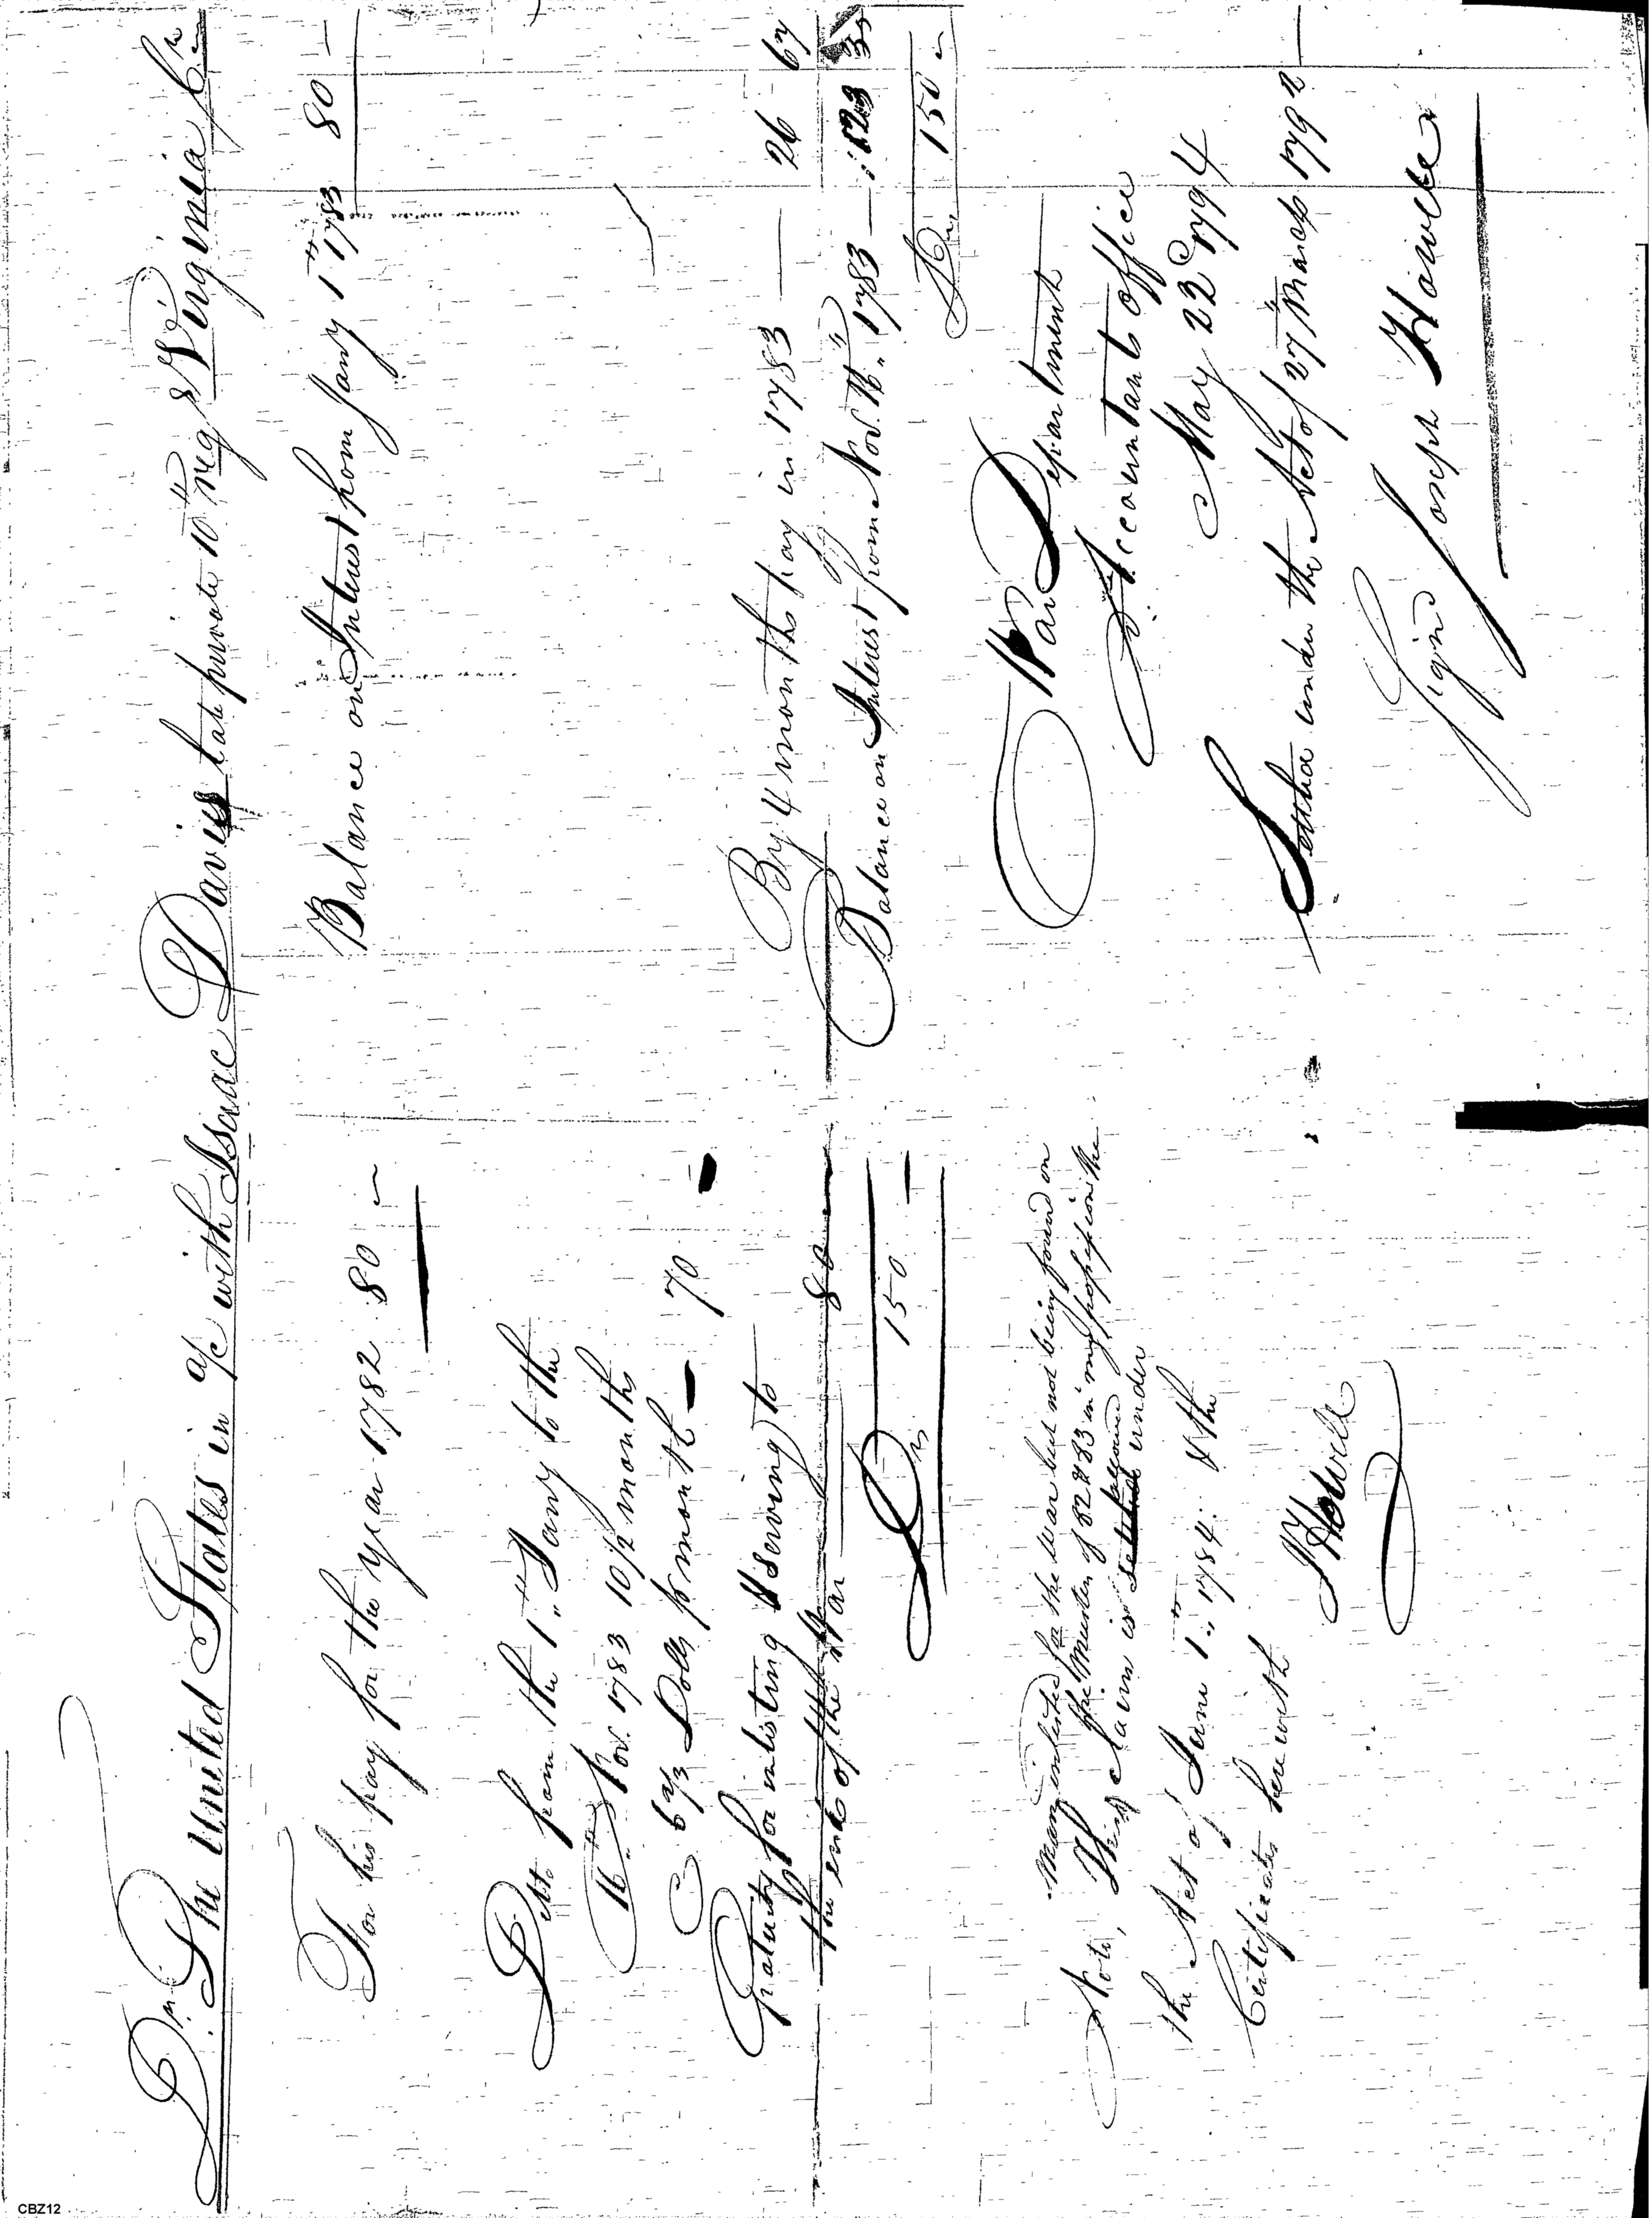 Dr. The United States in a/c with Isaac Davis late private 10th reg Virginia Cr
For his pay for the year 1782 80
Ditto from the 1st Jany to the
16th Nov. 1783 10 1/2 months
@ 6 2/3 Dolls p month 70
Gratuity for inlisting & serving to
the end of the War 80
Drs 150
Note, This Man inlisted for the war but not being found on
the Muster of 82 & 83 in my possession the
claim is settled allowed under
the Act of June 1st 1784. & the
Certificates herewith
J Howell
Balance on Interest from Jany 1st 1783 80
By 4 months pay in 1783 26 67
Balance on Interest from Nov. 16th 1783 123 33
Drs 150
War Department
Accountants office
May 22d 1794
Settled under the Act of 27th March 1792
Signed Joseph Howell
CBZ12